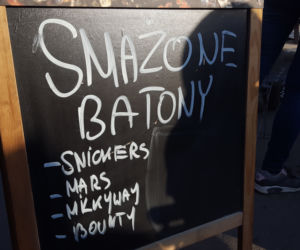 SMAZONE
BATONY
- SNICKERS
- MARS
- MILKYWAY
- BOUNTY